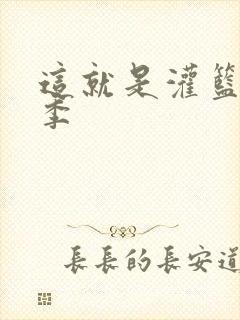 這就是灌籃
季
長長的長安道